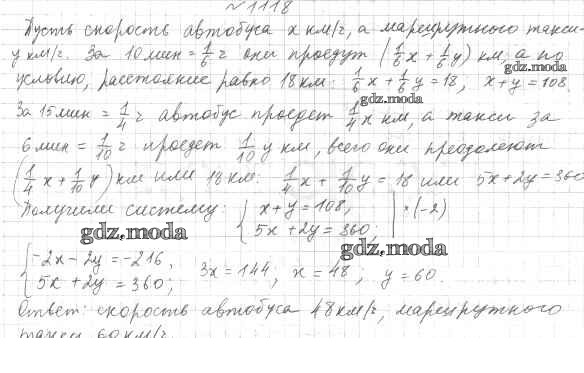 № 1118
Пусть скорость автобуса x км/ч, а маршрутного такси -
y км/ч. За 10 мин = 1/6 ч они проедут (1/6x + 1/6y) км, а по
gdz.moda
условию, расстояние равно 18 км: 1/6x + 1/6y = 18, x + y = 108.
gdz.moda
За 15 мин = 1/4 ч автобус проедет 1/4x км, а такси за
6 мин = 1/10 ч проедет 1/10y км, всего они преодолеют
(1/4x + 1/10y) км или 18 км: 1/4x + 1/10y = 18 или 5x + 2y = 360
Получили систему: { x + y = 108, | · (-2)
5x + 2y = 360;
gdz.moda
gdz.moda
{ -2x - 2y = -216, 3x = 144; x = 48; y = 60.
5x + 2y = 360;
Ответ: скорость автобуса 48 км/ч, маршрутного
такси 60 км/ч.